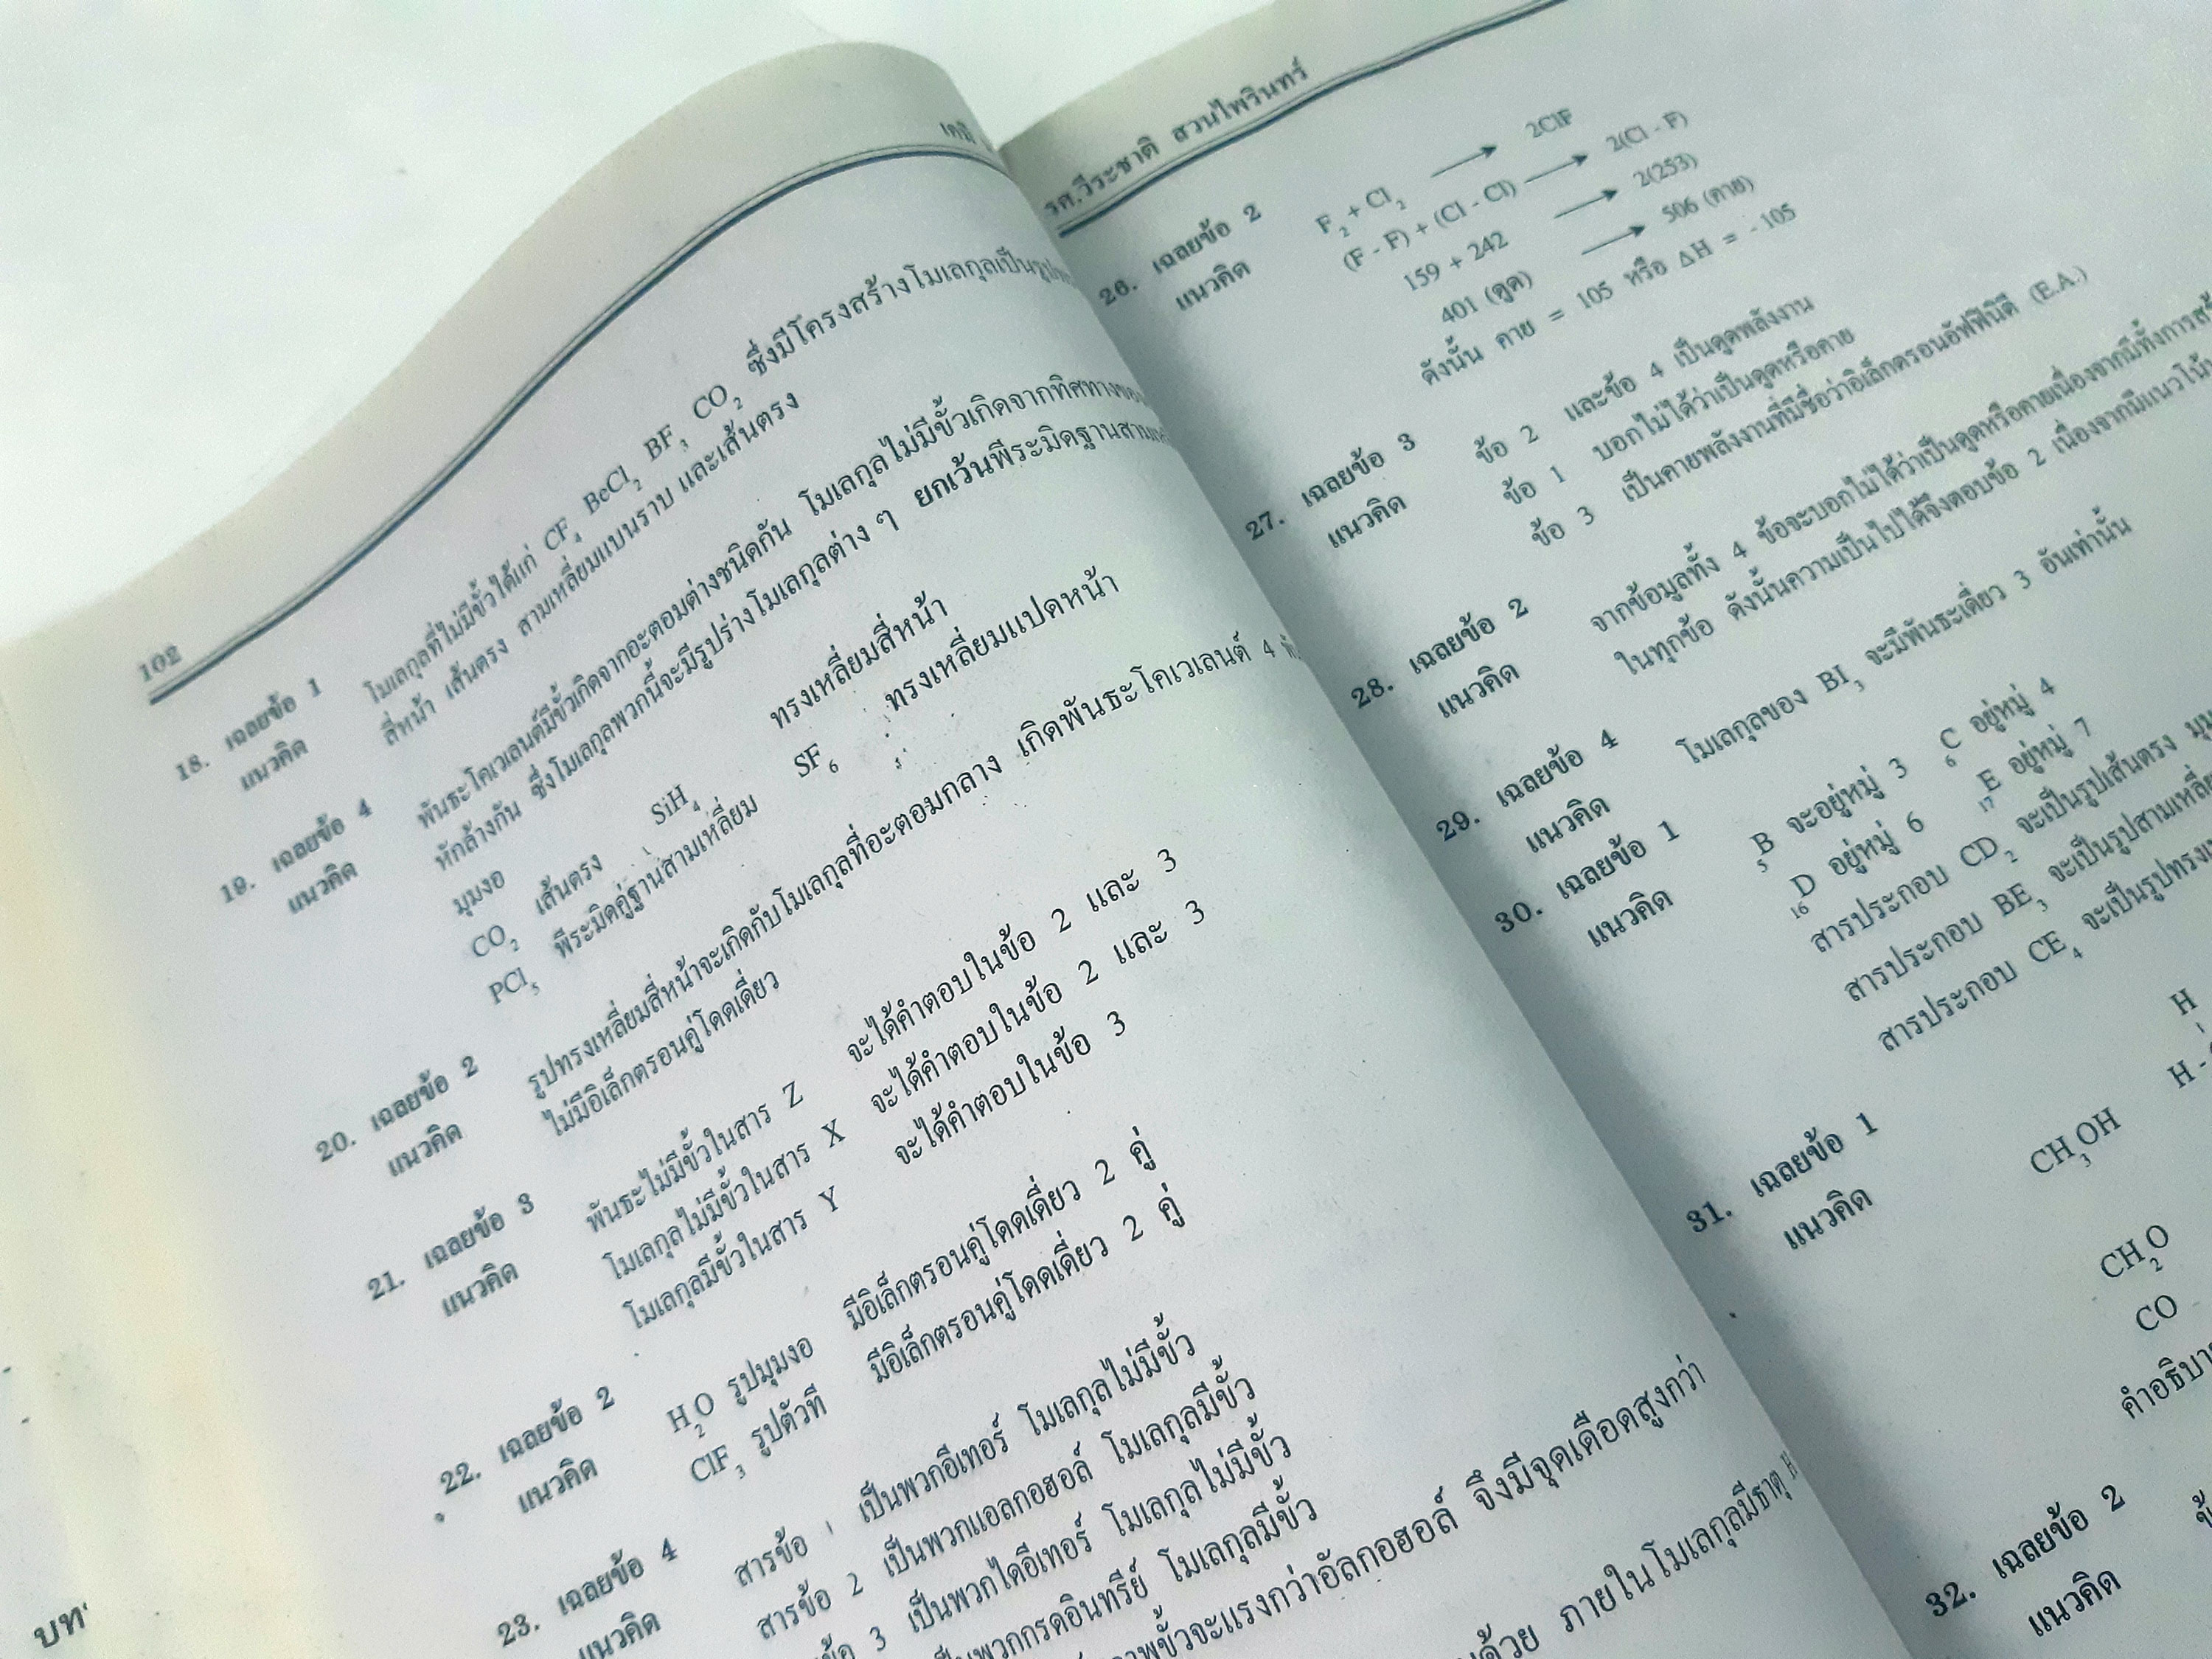 102
เคมี
18. เฉลยข้อ 1
แนวคิด โมเลกุลที่ไม่มีขั้วได้แก่ CF₄ BeCl₂ BF₃ CO₂ ซึ่งมีโครงสร้างโมเลกุลเป็น
สี่หน้า เส้นตรง สามเหลี่ยมแบนราบ และเส้นตรง
19. เฉลยข้อ 4
แนวคิด พันธะโคเวเลนต์มีขั้วเกิดจากอะตอมต่างชนิดกัน โมเลกุลไม่มีขั้วเกิดจากทิศทางของ
หักล้างกัน ซึ่งโมเลกุลพวกนี้จะมีรูปร่างโมเลกุลต่าง ๆ ยกเว้นพีระมิดฐานสามเหลี่ยม
มุมงอ
CO₂ เส้นตรง SiH₄ ทรงเหลี่ยมสี่หน้า
PCl₅ พีระมิดคู่ฐานสามเหลี่ยม SF₆ ทรงเหลี่ยมแปดหน้า
20. เฉลยข้อ 2
แนวคิด รูปทรงเหลี่ยมสี่หน้าจะเกิดกับโมเลกุลที่อะตอมกลาง เกิดพันธะโคเวเลนต์ 4
ไม่มีอิเล็กตรอนคู่โดดเดี่ยว
21. เฉลยข้อ 3
แนวคิด พันธะไม่มีขั้วในสาร Z จะได้คำตอบในข้อ 2 และ 3
โมเลกุลไม่มีขั้วในสาร X จะได้คำตอบในข้อ 2 และ 3
โมเลกุลมีขั้วในสาร Y จะได้คำตอบในข้อ 3
22. เฉลยข้อ 2
แนวคิด H₂O รูปมุมงอ มีอิเล็กตรอนคู่โดดเดี่ยว 2 คู่
ClF₃ รูปตัวที มีอิเล็กตรอนคู่โดดเดี่ยว 2 คู่
23. เฉลยข้อ 4
แนวคิด สารข้อ 1 เป็นพวกอีเทอร์ โมเลกุลไม่มีขั้ว
สารข้อ 2 เป็นพวกแอลกอฮอล์ โมเลกุลมีขั้ว
ข้อ 3 เป็นพวกไดอีเทอร์ โมเลกุลไม่มีขั้ว
เป็นพวกกรดอินทรีย์ โมเลกุลมีขั้ว
ภาพขั้วจะแรงกว่าอัลกอฮอล์ จึงมีจุดเดือดสูงกว่า
ด้วย ภายในโมเลกุลมีธาตุ H
บท
รศ.วีระชาติ สวนไพรินทร์
26. เฉลยข้อ 2
แนวคิด F₂ + Cl₂ → 2ClF
(F - F) + (Cl - Cl) → 2(Cl - F)
159 + 242 → 2(253)
401 (ดูด) → 506 (คาย)
ดังนั้น คาย = 105 หรือ ΔH = - 105
27. เฉลยข้อ 3
แนวคิด ข้อ 2 และข้อ 4 เป็นดูดพลังงาน
ข้อ 1 บอกไม่ได้ว่าเป็นดูดหรือคาย
ข้อ 3 เป็นคายพลังงานที่มีชื่อว่าอิเล็กตรอนอัฟฟินิตี (E.A.)
28. เฉลยข้อ 2
แนวคิด จากข้อมูลทั้ง 4 ข้อจะบอกไม่ได้ว่าเป็นดูดหรือคายเนื่องจากมีทั้งการ
ในทุกข้อ ดังนั้นความเป็นไปได้จึงตอบข้อ 2 เนื่องจากมีแนวโน้ม
29. เฉลยข้อ 4
แนวคิด โมเลกุลของ BI₃ จะมีพันธะเดี่ยว 3 อันเท่านั้น
30. เฉลยข้อ 1
แนวคิด ₅B จะอยู่หมู่ 3 ₆C อยู่หมู่ 4
₁₆D อยู่หมู่ 6 ₁₇E อยู่หมู่ 7
สารประกอบ CD₂ จะเป็นรูปเส้นตรง
สารประกอบ BE₃ จะเป็นรูปสามเหลี่ยม
สารประกอบ CE₄ จะเป็นรูปทรง
31. เฉลยข้อ 1
H
H -
แนวคิด CH₃OH
CH₂O
CO
คำอธิบาย
32. เฉลยข้อ 2
แนวคิด